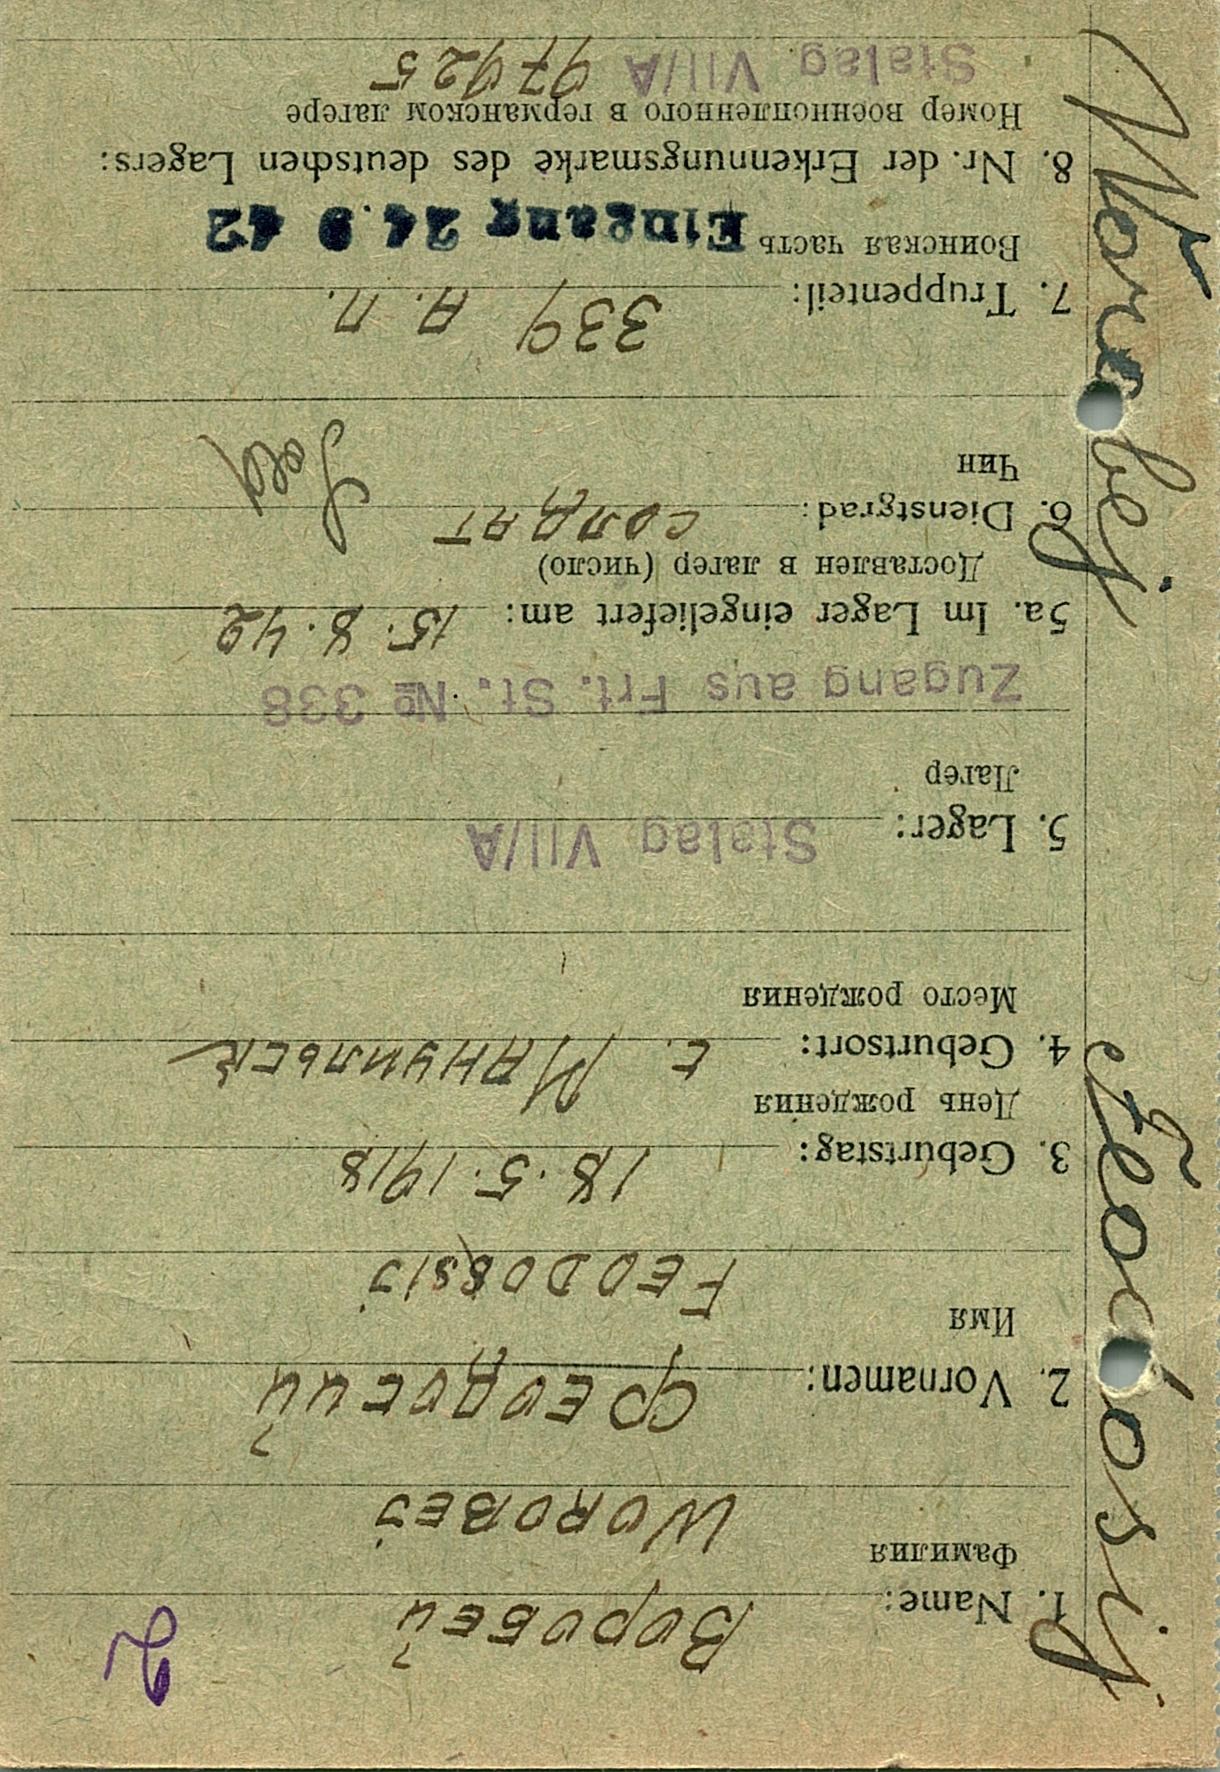 2
1. Name: Воробей
Фамилия
WOROBEJ
2. Vornamen: Феодосий
Имя
FEODOSSIJ
3. Geburtstag: 18.5.1918
День рождения
4. Geburtsort: с. Мануильск
Место рождения
5. Lager: Stalag VII/A
Лагер
Zugang aus Frt. St. № 338
5a. Im Lager eingeliefert am: 15.8.42
Доставлен в лагер (число)
6. Dienstgrad: солдат Sold
Чин
7. Truppenteil: 339 А.П.
Воинская часть Eingang 24.9 42
8. Nr. der Erkennungsmarke des deutschen Lagers:
Номер военнопленного в германском лагере
Stalag VII/A 97925
Worobej Feodosij